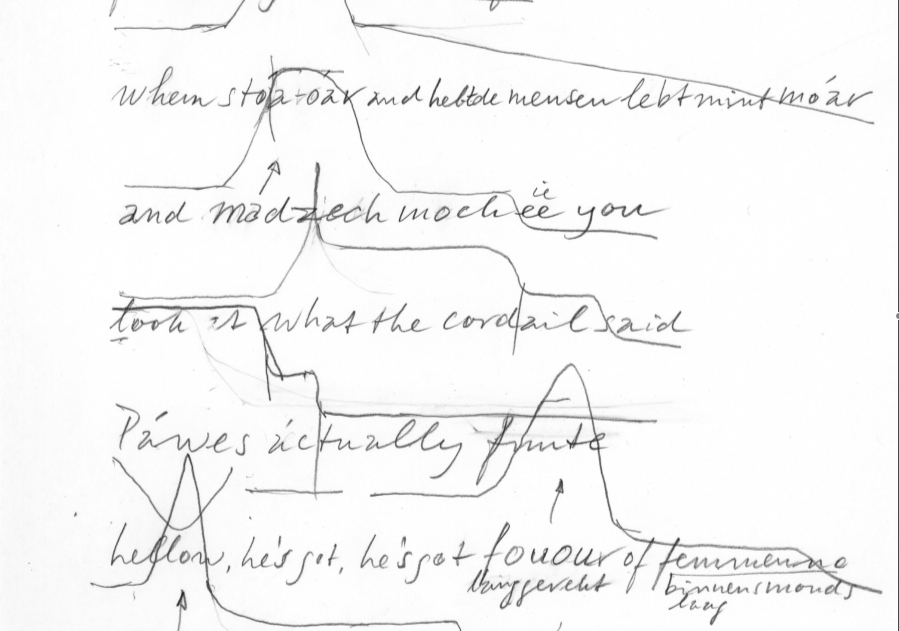 when stóa-óar and hebtde mensen lebt mint móar
and madzech moch ëë you
ië
took it what the cordail said
Páwes áctually fuute
hellow, he's got, he's got fououur of femmenno
langgerekt binnensmonds
laag